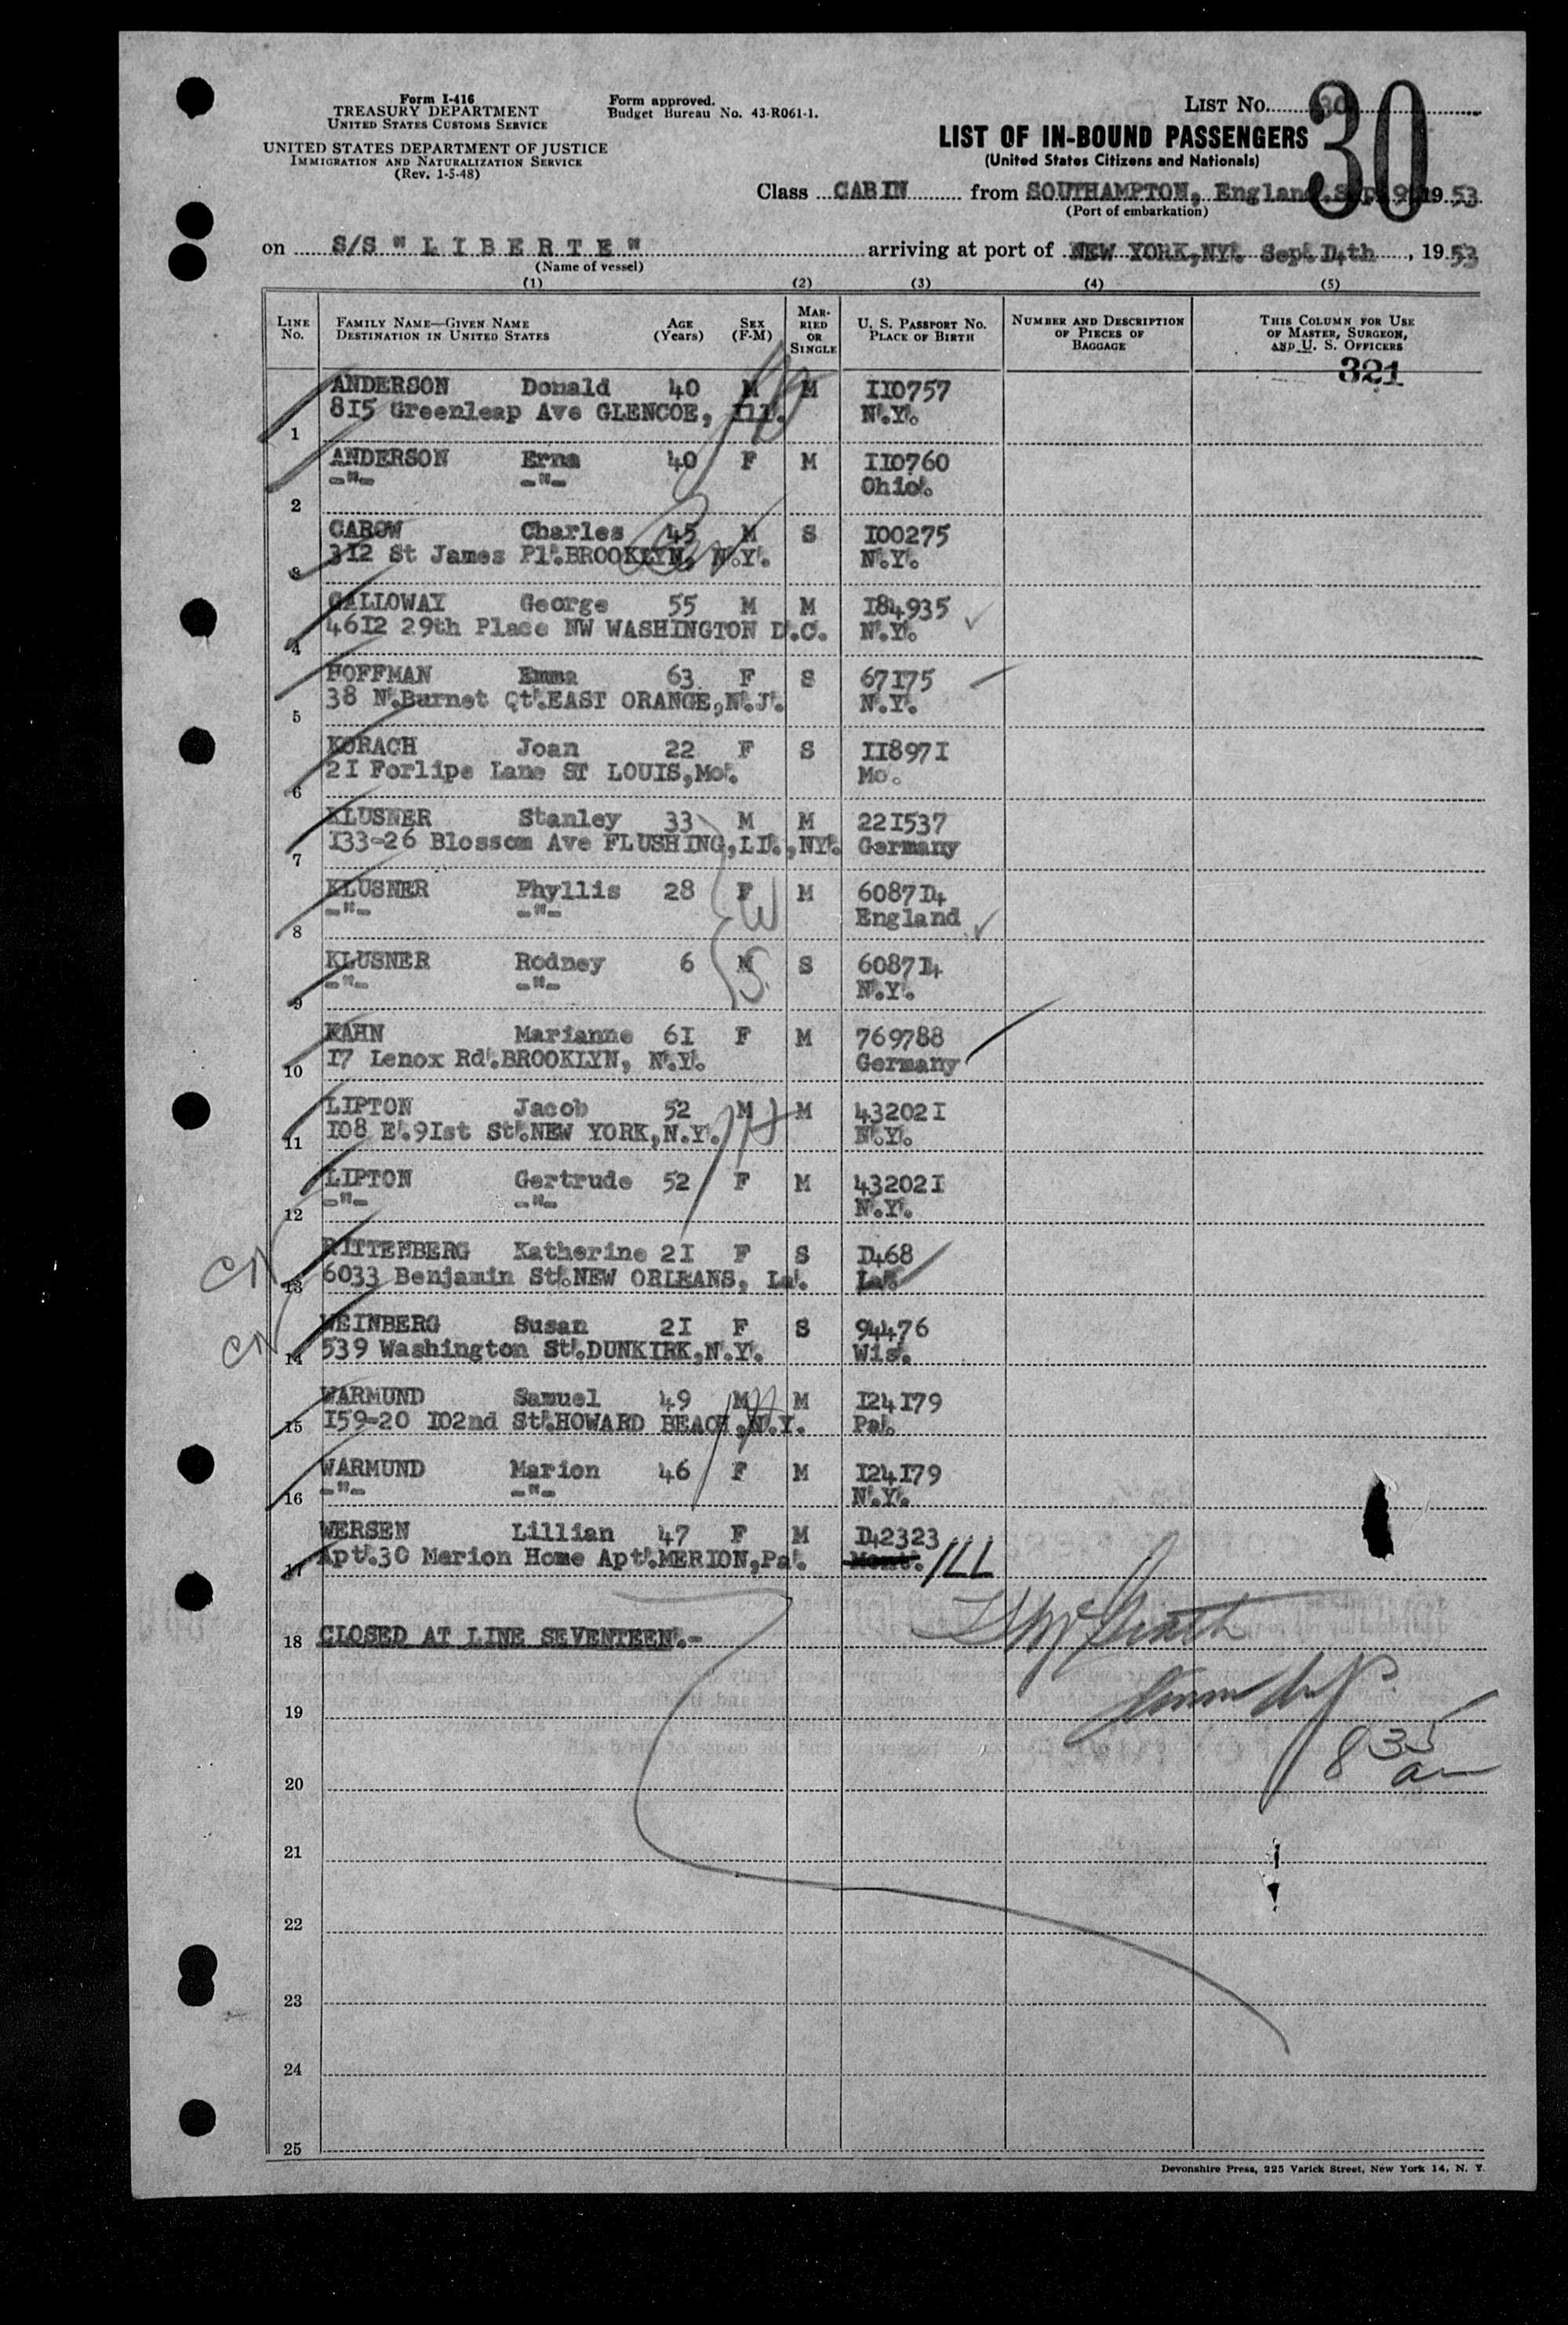 Form I-416
TREASURY DEPARTMENT
UNITED STATES CUSTOMS SERVICE
UNITED STATES DEPARTMENT OF JUSTICE
IMMIGRATION AND NATURALIZATION SERVICE
(Rev. 1-5-48)
Form approved.
Budget Bureau No. 43-R061-1.
LIST NO. 30
30
LIST OF IN-BOUND PASSENGERS
(United States Citizens and Nationals)
Class CABIN from SOUTHAMPTON, England. Sep. 9, 1953
(Port of embarkation)
on S/S "LIBERTE" arriving at port of NEW YORK,NY. Sept D4th, 1953
(Name of vessel)
(1) (2) (3) (4) (5)
LINE No. FAMILY NAME—GIVEN NAME DESTINATION IN UNITED STATES AGE (Years) SEX (F-M) MARRIED OR SINGLE U. S. PASSPORT NO. PLACE OF BIRTH NUMBER AND DESCRIPTION OF PIECES OF BAGGAGE THIS COLUMN FOR USE OF MASTER, SURGEON, AND U. S. OFFICERS
321
ANDERSON Donald 40 M M II0757
1 8I5 Greenleap Ave GLENCOE, Ill. N.Y.
ANDERSON Erna 40 F M II0760
2 -"- -"- Ohio.
CAROW Charles 45 M S I00275
3 3I2 St James Pl.BROOKLYN, N.Y. N.Y.
GALLOWAY George 55 M M I84935
4 46I2 29th Place NW WASHINGTON D.C. N.Y.
HOFFMAN Emma 63 F S 67I75
5 38 N.Burnet Qt.EAST ORANGE,N.J. N.Y.
KORACH Joan 22 F S II897I
6 2I Forlipe Lane ST LOUIS,Mo. Mo.
KLUSNER Stanley 33 M M 22I537
7 I33-26 Blossom Ave FLUSHING,LI.,NY. Germany
KLUSNER Phyllis 28 F M 6087D4
8 -"- -"- England
KLUSNER Rodney 6 M S 6087D4
9 -"- -"- N.Y.
KAHN Marianne 6I F M 769788
10 I7 Lenox Rd.BROOKLYN, N.Y. Germany
LIPTON Jacob 52 M M 43202I
11 I08 E.9Ist St.NEW YORK,N.Y. N.Y.
LIPTON Gertrude 52 F M 43202I
12 -"- -"- N.Y.
RITTENBERG Katherine 2I F S D468
13 6033 Benjamin St.NEW ORLEANS, La. La.
WEINBERG Susan 2I F S 94476
14 539 Washington St.DUNKIRK,N.Y. Wis.
WARMUND Samuel 49 M M I24I79
15 I59-20 I02nd St.HOWARD BEACH,N.Y. Pa.
WARMUND Marion 46 F M I24I79
16 -"- -"- N.Y.
WERSEN Lillian 47 F M D42323
17 Apt.30 Merion Home Apt.MERION,Pa. Mont. ILL
18 CLOSED AT LINE SEVENTEEN.-
19
8 35 am
20
21
22
23
24
25
Devonshire Press, 225 Varick Street, New York 14, N. Y.